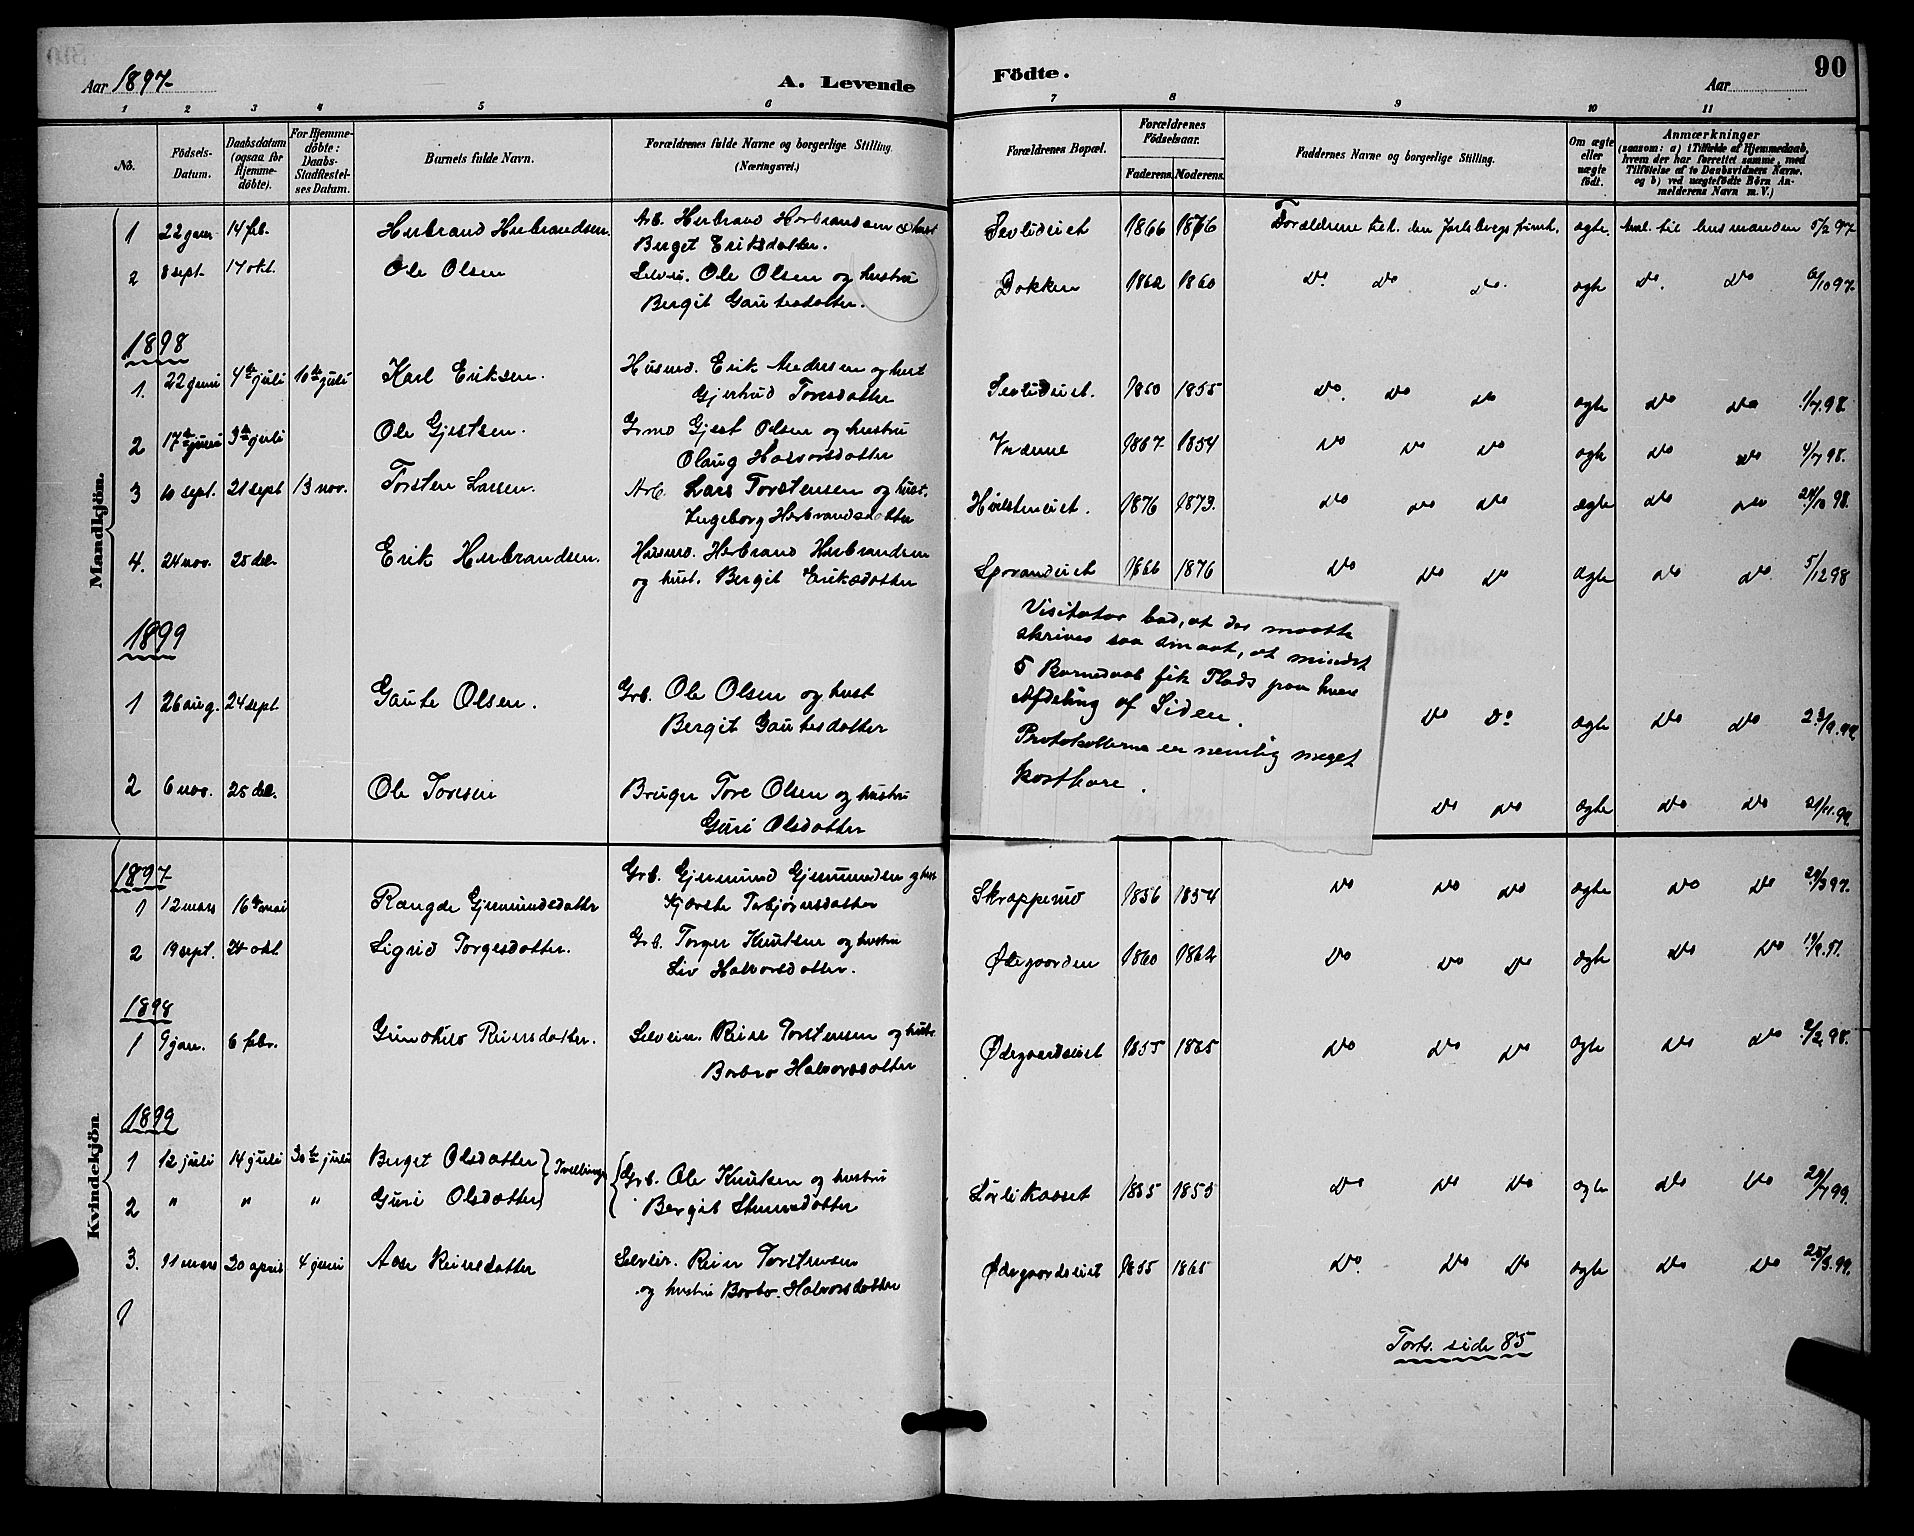 Aar 1897. A. Levende
1 2 3 4 5 6
No. Födsels-Datum. Daabsdatum (ogsaa for Hjemmedöbte). For Hjemmedöbte: Daabs-Stadfestelses Datum. Barnets fulde Navn. Forældrenes fulde Navne og borgerlige Stilling. (Næringsvei.)
Mandkjön.
1 22 14 feb. Herbrand Herbrandsen. Arb. Herbrand Herbrandsen
Birget Eriksdatter.
2 8 sept. 17 okt. Ole Olsen Ole Olsen og hustru
Bergit Gautesdatter.
1898
1. 22 juni 4de juli 10de juli Karl Eriksen. Husmd. Erik Andresen og hust
Gjertrud Toresdatter
2 17de juni 3de juli Ole Gjestsen. Gjest Olsen og hustru
Olaug Halvorsdatter
3 10 sept. 21 sept 13 nov. Torsten Larsen. Arb. Lars Torstensen og hust.
Ingeborg Herbrandsdatter
4. 24 nov. 25 dec Erik Herbrandsen. Husmd. Herbrand Herbrandsen
og hust. Bergit Eriksdatter
1899
1 26 aug. 24 sept Gaute Olsen. Grb. Ole Olsen og hust
Bergit Gautesdatter
2 6 nov. 25 dec. Ole Toresen Bruger Tore Olsen og hustru
Guri Olsdatter
Kvindekjön.
1897
1 12 mars 16de mai Rangde Gjermundsdatter Grb. Gjermund Gjermundsen og hust
Torbjørnsdatter
2 19 sept. 24 okt. Sigrid Torgesdotter. Grb. Torger Knutsen og hustru
Liv Halvorsdotter.
1898
1 9 jan. 6 febr. Reiersdatter. Torstensen og
Borbro Halvorsdotter
1899
1 12 juli 14 juli 30te juli Berget Olsdotter Tvillinger Grb. Ole Knutsen og hustru
2 " " " Guri Olsdotter Bergit
3. 11 mars 30 april 4 juni Aase Reiersdotter Reier Torstensen
og hustru Borbr. Halvorsdotter
1
Födte. Aar 90
7 8 9 10 11
Forældrenes Bopæl. Forældrenes Födselsaar. Faderens. Moderens. Faddernes Navne og borgerlige Stilling. Om ægte eller uægte födt. Anmærkninger (saasom: a) i Tilfælde af Hjemmedaab, hvem der har forrettet samme, med Tilföielse af to Daabsvidners Navne, og b) ved uægtefödte Börn Anmelderens Navn m. V.)
1866 1876 Forældrene ægte. til 5/2 97
Dokken 1862 1860 Do. Do Do. ægte Do. Do 6/10 97
1850 1855 Do. Do Do ægte Do Do 1/7 98.
1867 1854 Do Do Do ægte Do Do 4/7 98.
1876 1873. Do Do Do ægte Do Do 24/10 98.
1866 1876 Do Do Do ægte Do Do. 5/12 98
Visitator bad, at der maatte
skrives saa smaat, at mindst
5 Barnedaab fik Plads paa hver
Afdeling af Siden.
Protokollerne er nemlig meget
kostbare.
Do Do ægte Do Do 23/9.99.
Do Do ægte Do Do 21/11.99.
Skroppemo 1856 1854 Do Do Do ægte Do Do 29/3 97.
Ødegaarden 1860 1862 Do Do Do ægte Do Do
Ødegaardseiet 1855 1865 Do Do Do ægte Do Do 2/2 98.
1855 1855 Do Do Do ægte Do Do 20/7 99.
Ødegaardseiet 1855 1865 Do. Do Do ægte Do Do 25/3.99.
Forts. side 85